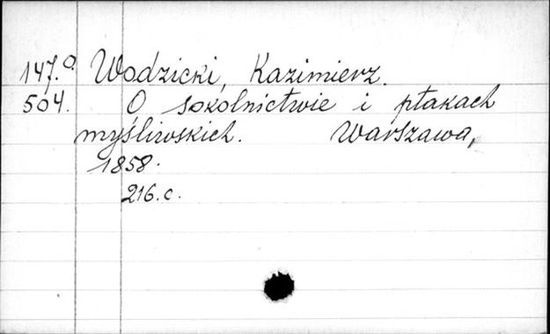 147.0. Wodzicki, Kazimierz.
504. O sokolnictwie i ptakach
myśliwskich. Warszawa,
1858.
216.c.